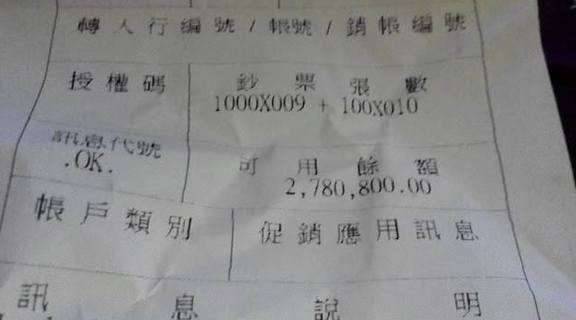 轉入行編號/帳號/銷帳編號
授權碼 鈔票張數
1000X009 + 100X010
訊息代號 可用餘額
.OK. 2,780,800.00
帳戶類別 促銷應用訊息
訊息說明